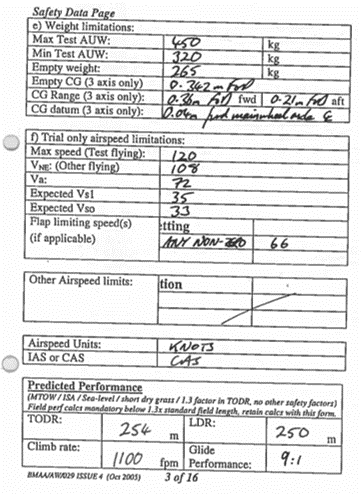 Safety Data Page
e) Weight limitations:
Max Test AUW: 450 kg
Min Test AUW: 320 kg
Empty weight: 265 kg
Empty CG (3 axis only) 0.342 m FWD
CG Range (3 axis only): 0.36m FWD fwd 0.21m FWD aft
CG datum (3 axis only): 0.04m fwd mainwheel axle
f) Trial only airspeed limitations:
Max speed (Test flying): 120
VNE: (Other flying) 108
Va: 72
Expected Vs1 35
Expected Vso 33
Flap limiting speed(s) etting
(if applicable) ANY NON-ZERO 66
Other Airspeed limits: tion
Airspeed Units: KNOTS
IAS or CAS CAS
Predicted Performance
(MTOW / ISA / Sea-level / short dry grass / 1.3 factor in TODR, no other safety factors)
Field perf calcs mandatory below 1.3x standard field length, retain calcs with this form.
TODR: 254 m LDR: 250 m
Climb rate: 1100 fpm Glide
Performance: 9:1
BMAA/AW/029 ISSUE 4 (Oct 2005) 3 of 16